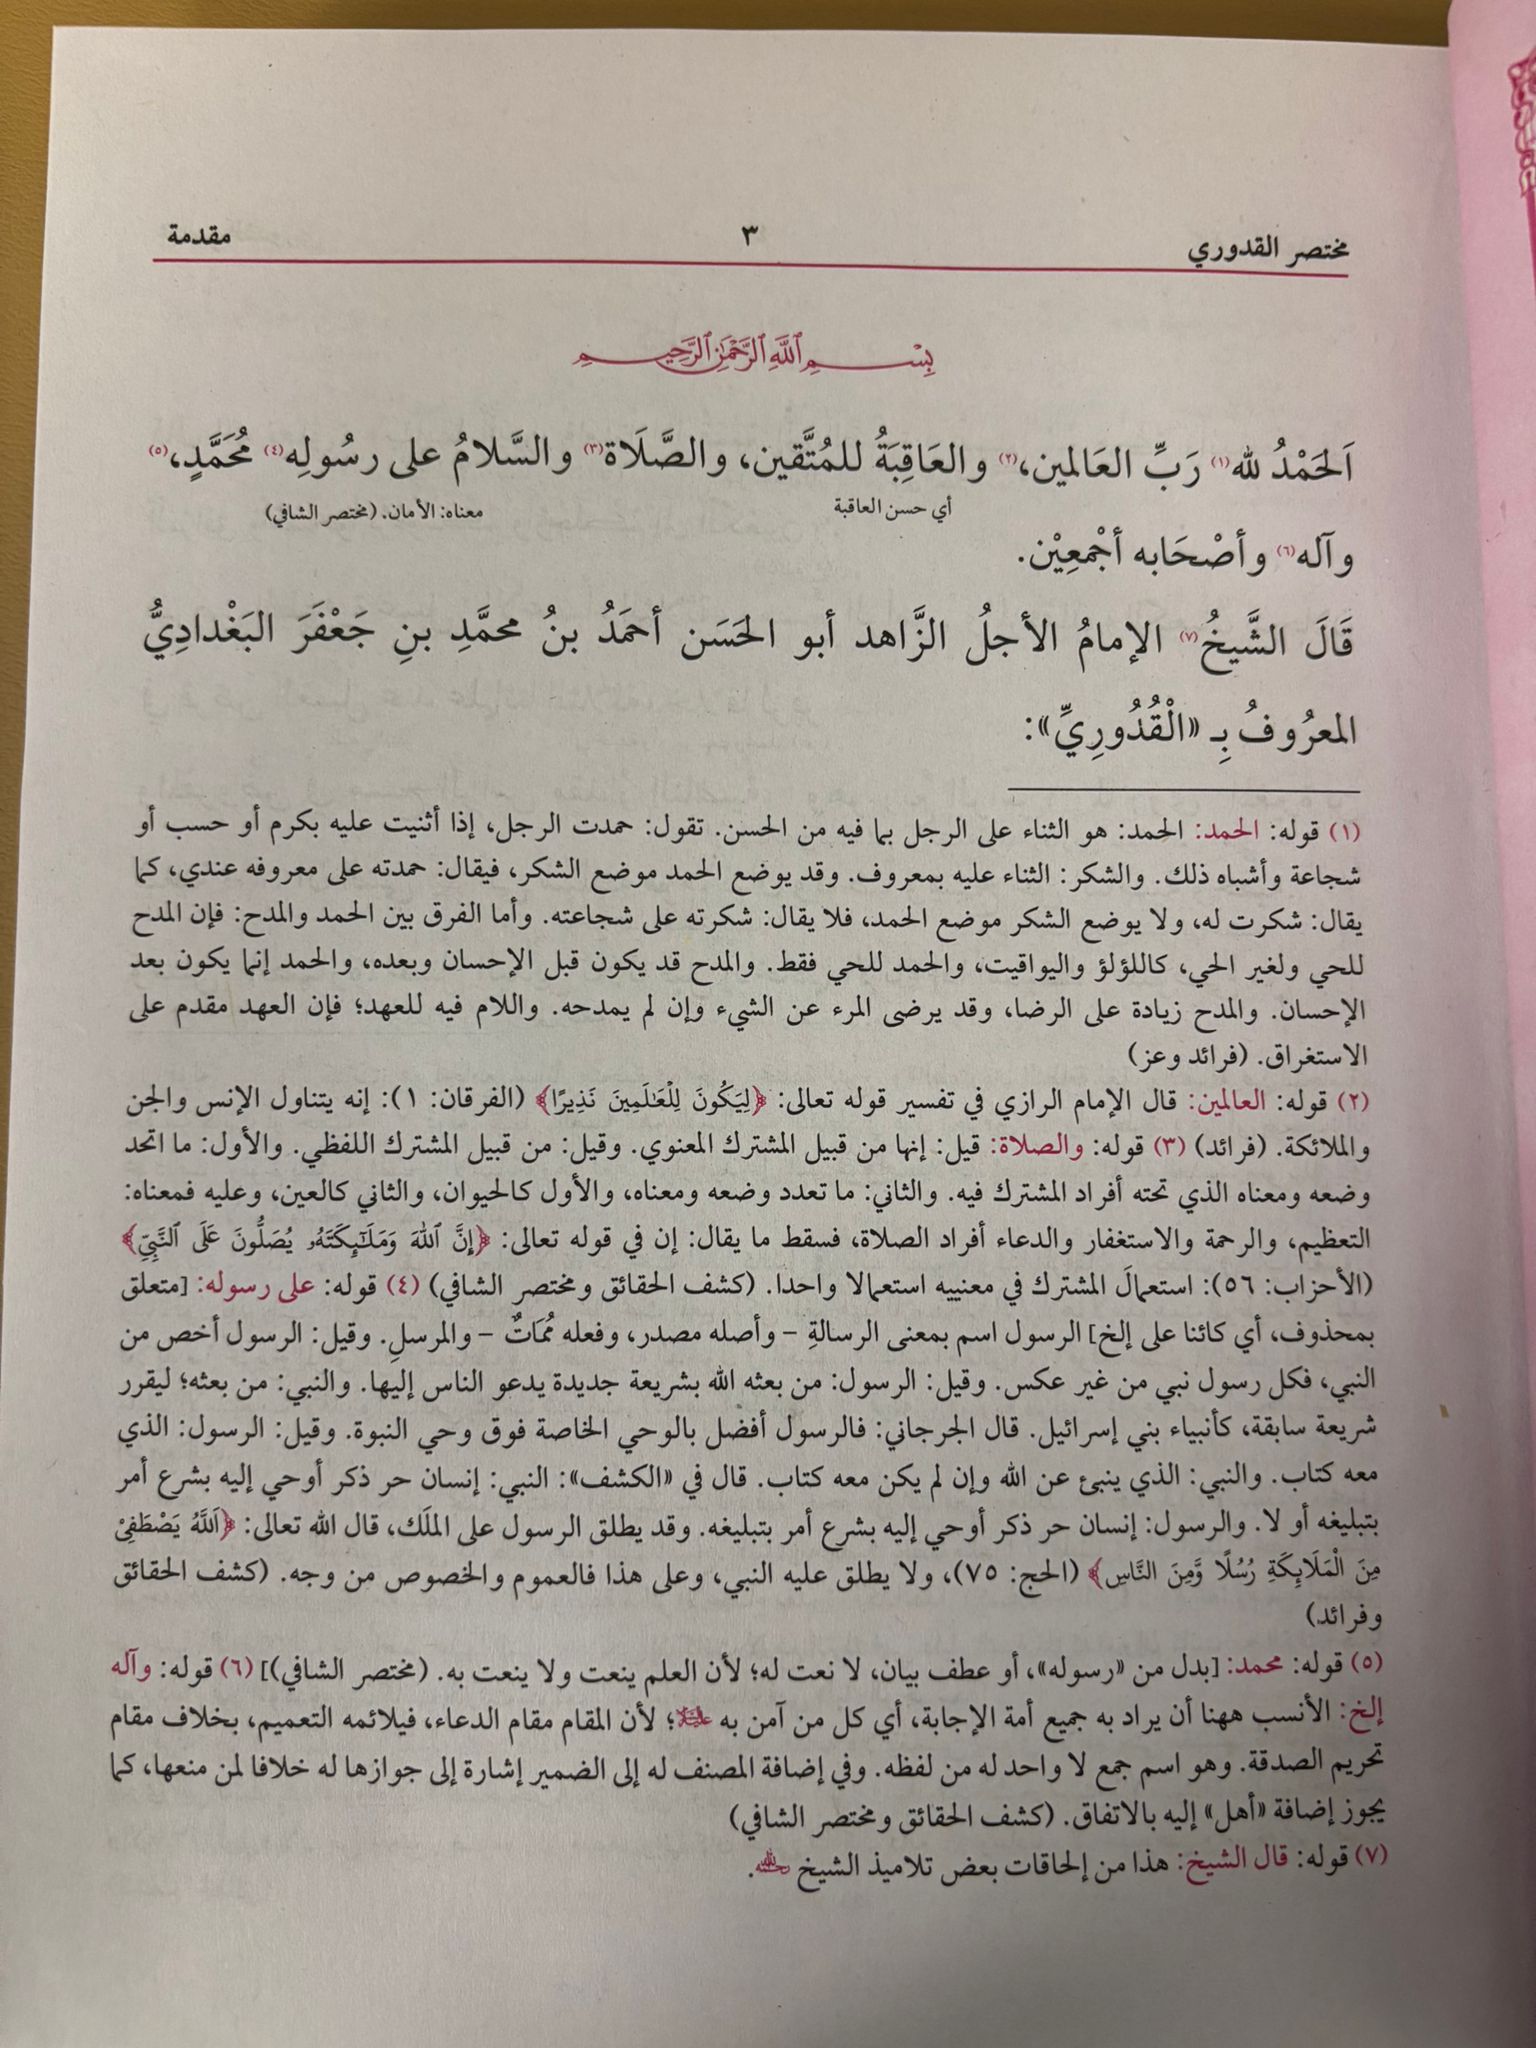 مختصر القدوري ٣ مقدمة
بِسْمِ ٱللَّهِ ٱلرَّحْمَٰنِ ٱلرَّحِيمِ
اَلحَمْدُ لله(١) رَبِّ العَالمين،(٢) والعَاقِبَةُ للمُتَّقين، والصَّلَاة(٣) والسَّلامُ على رسُولِه(٤) مُحَمَّدٍ،(٥)
أي حسن العاقبة معناه: الأمان. (مختصر الشافي)
وآله(٦) وأصْحَابه أجْمعِيْن.
قَالَ الشَّيخُ(٧) الإمامُ الأجلُ الزَّاهد أبو الحَسَن أحمَدُ بنُ محمَّدِ بنِ جَعْفَرَ البَغْدادِيُّ
المعرُوفُ بِـ «الْقُدُورِيِّ»:
(١) قوله: الحمد: الحمد: هو الثناء على الرجل بما فيه من الحسن. تقول: حمدت الرجل، إذا أثنيت عليه بكرم أو حسب أو
شجاعة وأشباه ذلك. والشكر: الثناء عليه بمعروف. وقد يوضع الحمد موضع الشكر، فيقال: حمدته على معروفه عندي، كما
يقال: شكرت له، ولا يوضع الشكر موضع الحمد، فلا يقال: شكرته على شجاعته. وأما الفرق بين الحمد والمدح: فإن المدح
للحي ولغير الحي، كاللؤلؤ واليواقيت، والحمد للحي فقط. والمدح قد يكون قبل الإحسان وبعده، والحمد إنما يكون بعد
الإحسان. والمدح زيادة على الرضا، وقد يرضى المرء عن الشيء وإن لم يمدحه. واللام فيه للعهد؛ فإن العهد مقدم على
الاستغراق. (فرائد وعز)
(٢) قوله: العالمين: قال الإمام الرازي في تفسير قوله تعالى: ﴿لِيَكُونَ لِلْعَٰلَمِينَ نَذِيرًا﴾ (الفرقان: ١): إنه يتناول الإنس والجن
والملائكة. (فرائد) (٣) قوله: والصلاة: قيل: إنها من قبيل المشترك المعنوي. وقيل: من قبيل المشترك اللفظي. والأول: ما اتحد
وضعه ومعناه الذي تحته أفراد المشترك فيه. والثاني: ما تعدد وضعه ومعناه، والأول كالحيوان، والثاني كالعين، وعليه فمعناه:
التعظيم، والرحمة والاستغفار والدعاء أفراد الصلاة، فسقط ما يقال: إن في قوله تعالى: ﴿إِنَّ ٱللهَ وَمَلَٰٓئِكَتَهُۥ يُصَلُّونَ عَلَى ٱلنَّبِيِّ﴾
(الأحزاب: ٥٦): استعمالَ المشترك في معنييه استعمالا واحدا. (كشف الحقائق ومختصر الشافي) (٤) قوله: على رسوله: [متعلق
بمحذوف، أي كائنا على إلخ] الرسول اسم بمعنى الرسالةِ – وأصله مصدر، وفعله مُمَاتٌ – والمرسلِ. وقيل: الرسول أخص من
النبي، فكل رسول نبي من غير عكس. وقيل: الرسول: من بعثه الله بشريعة جديدة يدعو الناس إليها. والنبي: من بعثه؛ ليقرر
شريعة سابقة، كأنبياء بني إسرائيل. قال الجرجاني: فالرسول أفضل بالوحي الخاصة فوق وحي النبوة. وقيل: الرسول: الذي
معه كتاب. والنبي: الذي ينبئ عن الله وإن لم يكن معه كتاب. قال في «الكشف»: النبي: إنسان حر ذكر أوحي إليه بشرع أمر
بتبليغه أو لا. والرسول: إنسان حر ذكر أوحي إليه بشرع أمر بتبليغه. وقد يطلق الرسول على الملَك، قال الله تعالى: ﴿اَللَّهُ يَصْطَفِىْ
مِنَ الْمَلَائِكَةِ رُسُلًا وَّمِنَ النَّاسِ﴾ (الحج: ٧٥)، ولا يطلق عليه النبي، وعلى هذا فالعموم والخصوص من وجه. (كشف الحقائق
وفرائد)
(٥) قوله: محمد: [بدل من «رسوله»، أو عطف بيان، لا نعت له؛ لأن العلم ينعت ولا ينعت به. (مختصر الشافي)] (٦) قوله: وآله
إلخ: الأنسب ههنا أن يراد به جميع أمة الإجابة، أي كل من آمن به عليه السلام؛ لأن المقام مقام الدعاء، فيلائمه التعميم، بخلاف مقام
تحريم الصدقة. وهو اسم جمع لا واحد له من لفظه. وفي إضافة المصنف له إلى الضمير إشارة إلى جوازها له خلافا لمن منعها، كما
يجوز إضافة «أهل» إليه بالاتفاق. (كشف الحقائق ومختصر الشافي)
(٧) قوله: قال الشيخ: هذا من إلحاقات بعض تلاميذ الشيخ رحمه الله.